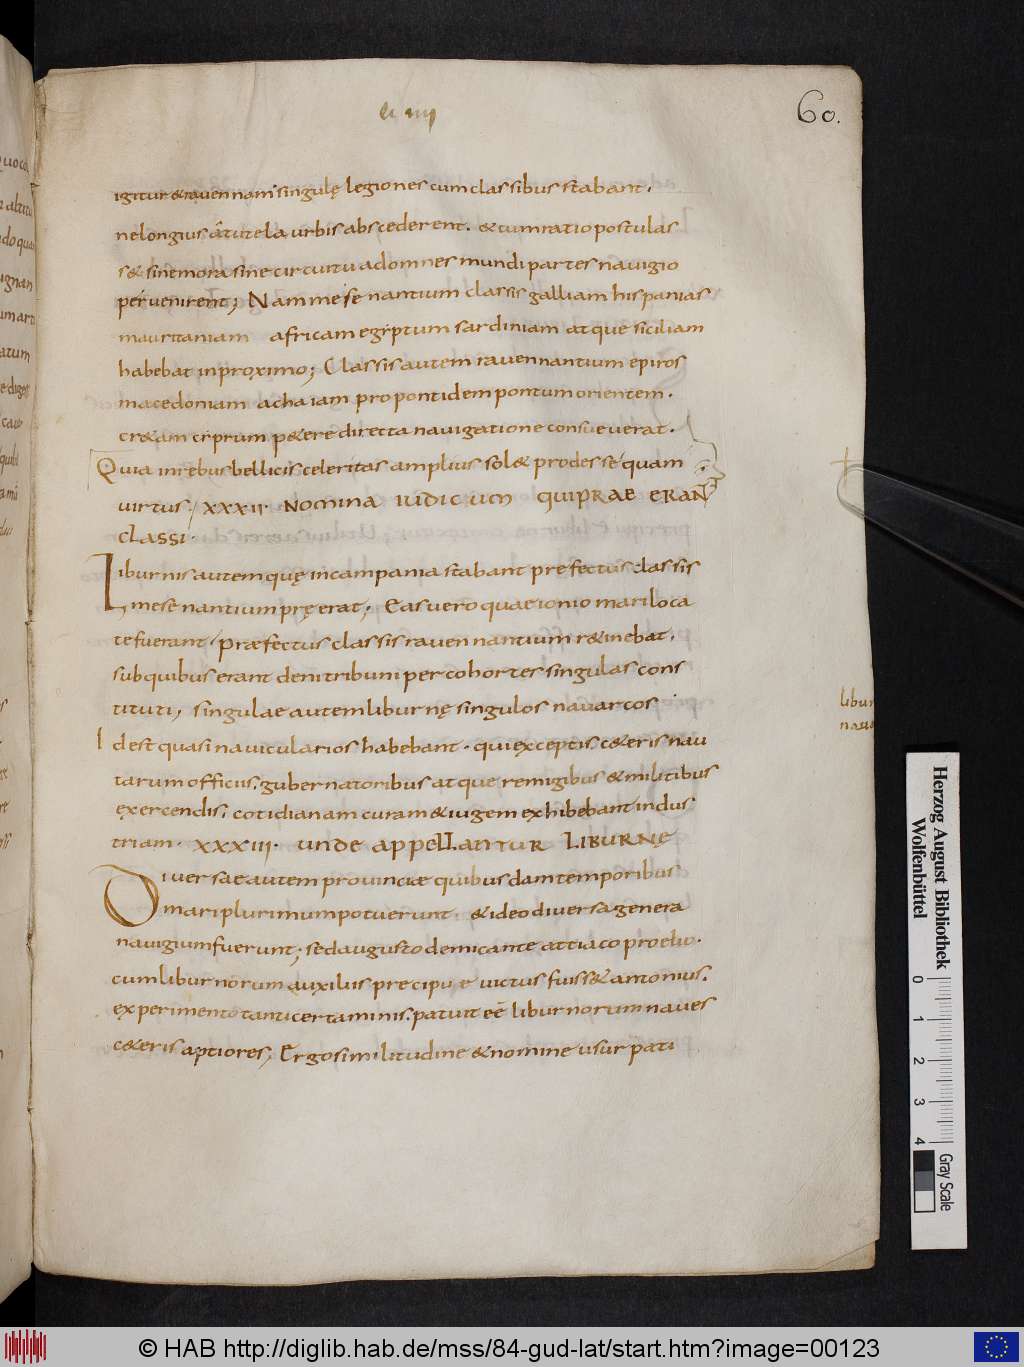 60.
igitur & raven nam singulę legiones cum classibus stabant.
ne longius a tutela urbis abscederent. & cum ratio postulas
s& sine mora sine circuitu ad omnes mundi partes navigio
pervenirent; Nam mesenantium classis galliam hispanias
mauritaniam africam egyptum sardiniam atque siciliam
habebat in proximo; Classis autem ravennantium epiros
macedoniam achaiam propontidem pontum orientem.
cr&am cyprum p&ere directa navigatione consueverat.
Quia in rebus bellicis celeritas amplius sol& prodesse quam
virtus; XXXII. NOMINA IUDICUM QUI PRAEERANT
CLASSI.
Liburnis autem quę in campania stabant prefectus classis
mesenantium pręerat; Eas vero quae ionio mari loca
te fuerant. præfectus classis ravennantium r&inebat.
sub quibus erant deni tribuni per cohortes singulas cons
tituti; singulae autem liburnę singulos navarcos
Idest quasi navicularios habebant. qui exceptis c&eris nau
tarum officiis. gubernatoribus atque remigibus & militibus
exercendis. cotidianam curam & iugem exhibebant indus
triam. XXXIII. UNDE APPELLANTUR LIBURNE
Diversae autem provinciæ quibusdam temporibus
mari plurimum potuerunt. & ideo diversa genera
navigium fuerunt; sed augusto demicante attiaco proelio.
cum liburnorum auxiliis precipue victus fuiss& antonius.
experimento tanti certaminis. patuit eē liburnorum naves
c&eris aptiores; Ergo similitudine & nomine usurpati
libur
nava
Herzog August Bibliothek
Wolfenbüttel
0 1 2 3 4
Gray Scale
© HAB http://diglib.hab.de/mss/84-gud-lat/start.htm?image=00123